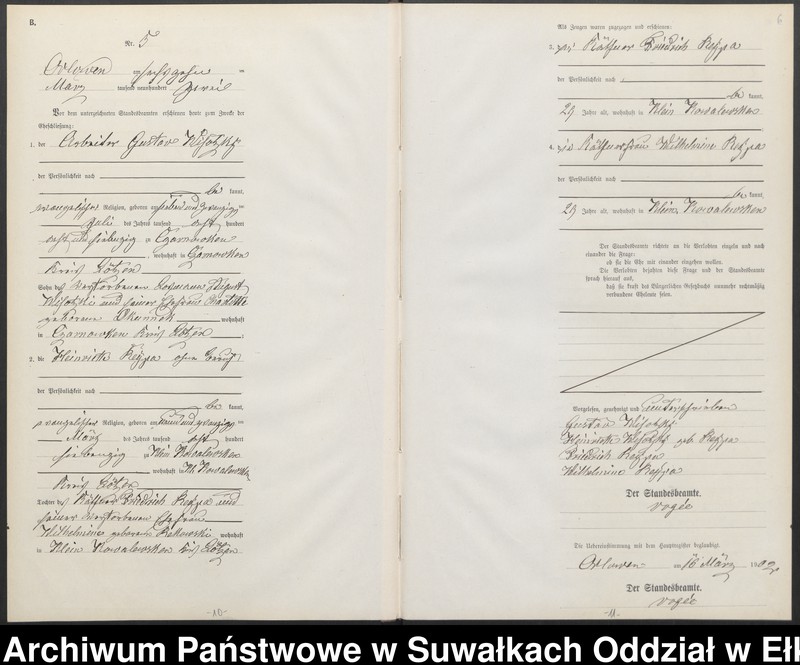 B.
Nr. 5
Orlowen am sechzehn ten
März tausend neunhundert zwei
Vor dem unterzeichneten Standesbeamten erschienen heute zum Zwecke der
Eheschließung:
1. der Arbeiter Gustav
der Persönlichkeit nach
be kannt,
evangelischer Religion, geboren am sieben und zwanzigsten
Juli des Jahres tausend acht hundert
acht und siebenzig zu Czarnowken
, wohnhaft in Czarnowken
Kreis Lötzen
Sohn des verstorbenen Losmann August
und seiner Ehefrau
geborene wohnhaft
in Czarnowken Kreis Lötzen ;
2. die Heinriette ohne Beruf
der Persönlichkeit nach
be kannt,
evangelischer Religion, geboren am und zwanzigsten
März des Jahres tausend acht hundert
siebenzig zu Klein Kowalewsken
, wohnhaft in Kl. Kowalewsken
Kreis Lötzen
Tochter des Käthner Friedrich und
seiner verstorbenen Ehefrau
Wilhelmine geborene wohnhaft
in Klein Kowalewsken Kreis Lötzen
-10-
6
Als Zeugen waren zugezogen und erschienen:
3. der Käthner Friedrich
der Persönlichkeit nach
be kannt,
29 Jahre alt, wohnhaft in Klein Kowalewsken
;
4. die Käthnerfrau Wilhelmine
der Persönlichkeit nach
be kannt,
29 Jahre alt, wohnhaft in Klein Kowalewsken
Der Standesbeamte richtete an die Verlobten einzeln und nach
einander die Frage:
ob sie die Ehe mit einander eingehen wollen.
Die Verlobten bejahten diese Frage und der Standesbeamte
sprach hierauf aus,
daß sie kraft des Bürgerlichen Gesetzbuchs nunmehr rechtmäßig
verbundene Eheleute seien.
Vorgelesen, genehmigt und unterschrieben
Gustav
Heinriette geb
Friedrich
Wilhelmine
Der Standesbeamte.
Vogée
Die Uebereinstimmung mit dem Hauptregister beglaubigt.
Orlowen am 16 März 1902
Der Standesbeamte.
Vogée
-11-
Archiwum Państwowe w Suwałkach Oddział w Ełk